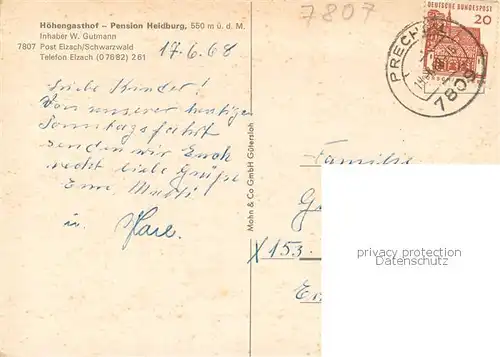 Höhengasthof – Pension Heidburg, 550 m ü. d. M.
Inhaber W. Gutmann
7807 Post Elzach/Schwarzwald
Telefon Elzach (0 76 82) 2 61
7807
DEUTSCHE BUNDESPOST
20
PRECH
7809
17.6.68
Liebe Kinder!
Von unserer heutigen
Sonntagsfahrt
senden wir Euch
recht liebe Grüße
Eure Mutti
u.
Mohn & Co GmbH Gütersloh
Familie
X 153
privacy protection
Datenschutz